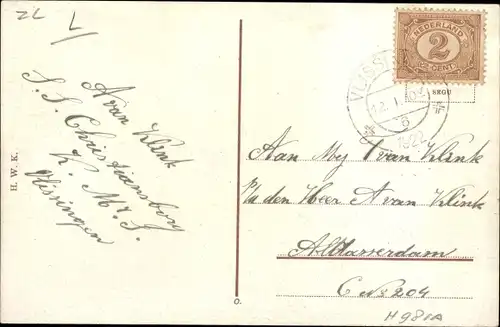 ZL
L
A van Klink
S.S. Christiansborg
K. M. S.
Vlissingen
H. W. K.
NEDERLAND
2
CENT
VLISSI
12
6
1922
8RGU
Aan Mej T van Klink
p/a den Heer A van Klink
Alblasserdam
C No 204
H981A
O.